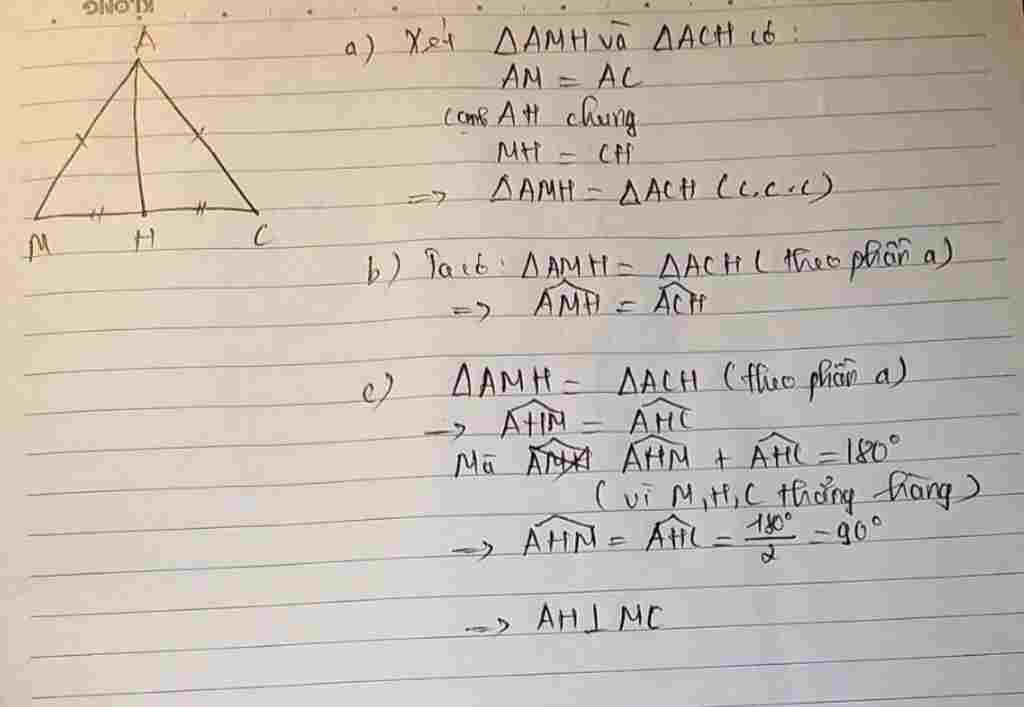 KLONG
A
M
H
C
a) Xét ΔAMH và ΔACH có:
AM = AC
cạnh AH chung
MH = CH
=> ΔAMH = ΔACH (c.c.c)
b) Ta có: ΔAMH = ΔACH (theo phần a)
=> \widehat{AMH} = \widehat{ACH}
c) ΔAMH = ΔACH (theo phần a)
-> \widehat{AHM} = \widehat{AHC}
Mà \widehat{AHM} + \widehat{AHC} = 180°
(vì M, H, C thẳng hàng)
-> \widehat{AHM} = \widehat{AHC} = \frac{180°}{2} = 90°
-> AH ⊥ MC